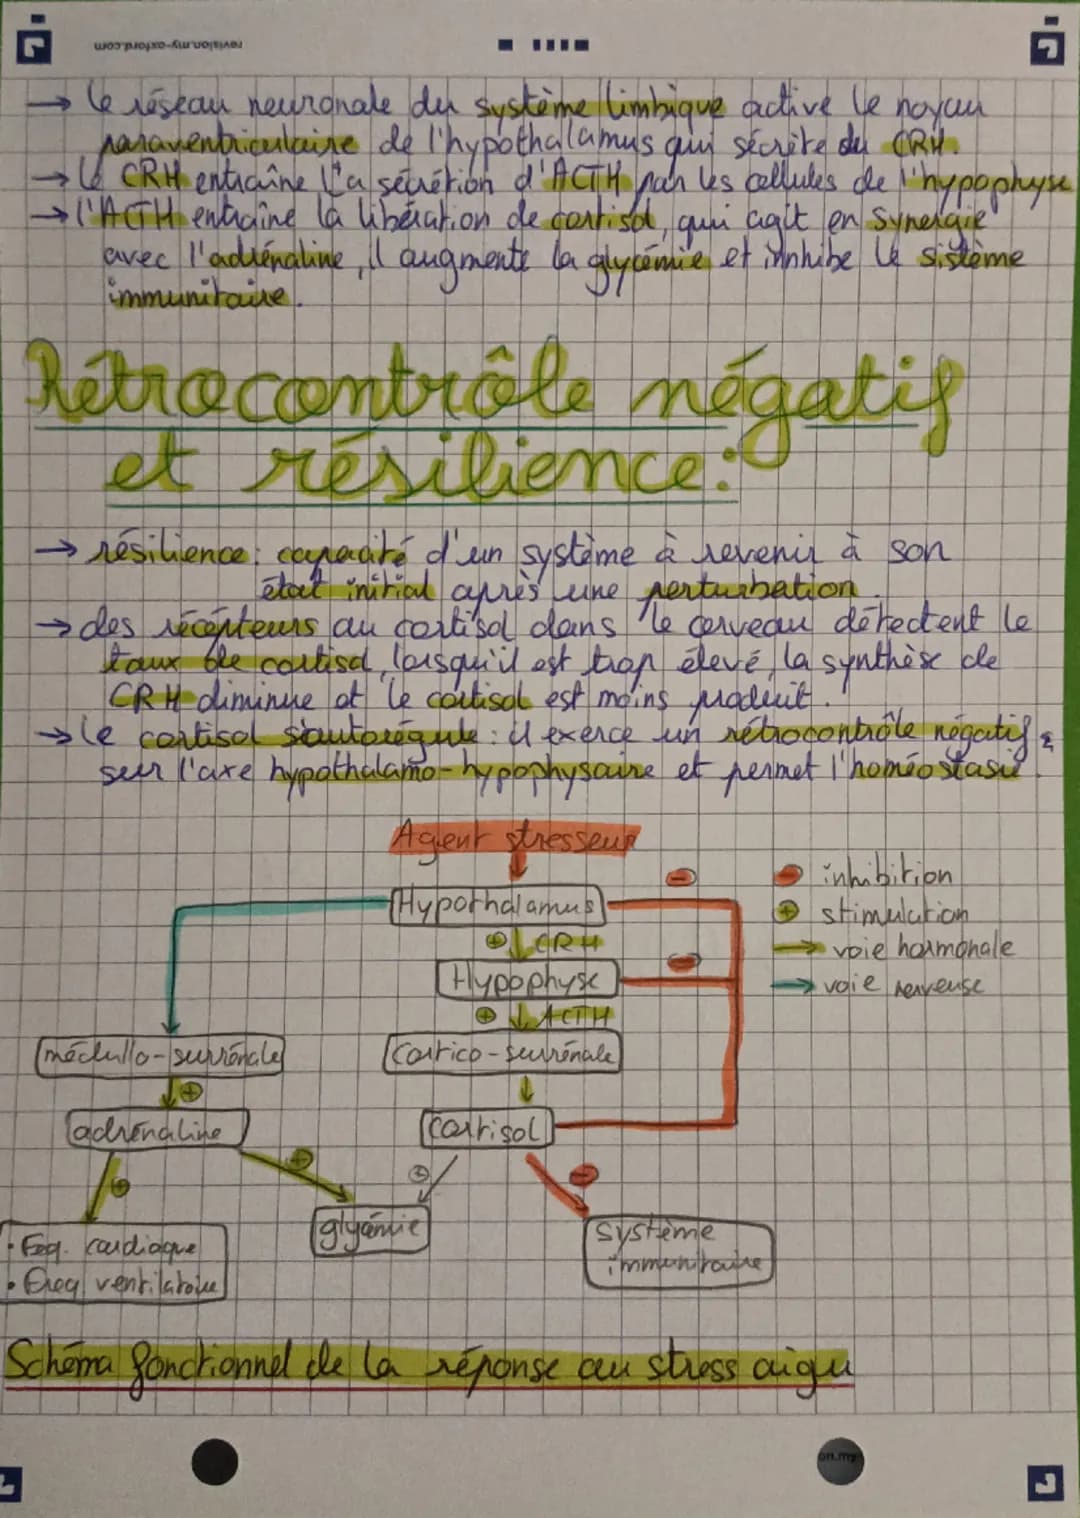 revision.my-oxford.com
→ le réseau neuronale du système limbique active le noyau
paraventriculaire de l'hypothalamus qui sécrète du CRH.
→ le CRH entraîne la sécrétion d'ACTH par les cellules de l'hypophyse
→ l'ACTH entraîne la libération de cortisol, qui agit en synergie
avec l'adrénaline, il augmente la glycémie et innhibe le sistème
immunitaire.
Rétrocontrôle négatif
et résilience:
→ résilience: capacité d'un système à revenir à son
état initial après une perturbation.
→ des récepteurs au cortisol dans le cerveau détectent le
taux de cortisol, lorsqu'il est trop élevé, la synthèse de
CRH diminue et le cortisol est moins produit.
→ le cortisol s'autorégule: il exerce un rétrocontrôle négatif
sur l'axe hypothalamo-hypophysaire et permet l'homéostasie.
Agent stresseur
Hypothalamus
⊕ CRH
Hypophyse
⊕ ACTH
médullo-surrénale
cortico-surrénale
⊕
adrénaline
cortisol
⊕
⊕
⊕
-
-
-
glycémie
système
immunitaire
• Freq. cardiaque
• Freq ventilatoire
- inhibition
⊕ stimulation
→ voie hormonale
→ voie nerveuse
Schéma fonctionnel de la réponse au stress aigu
on.my